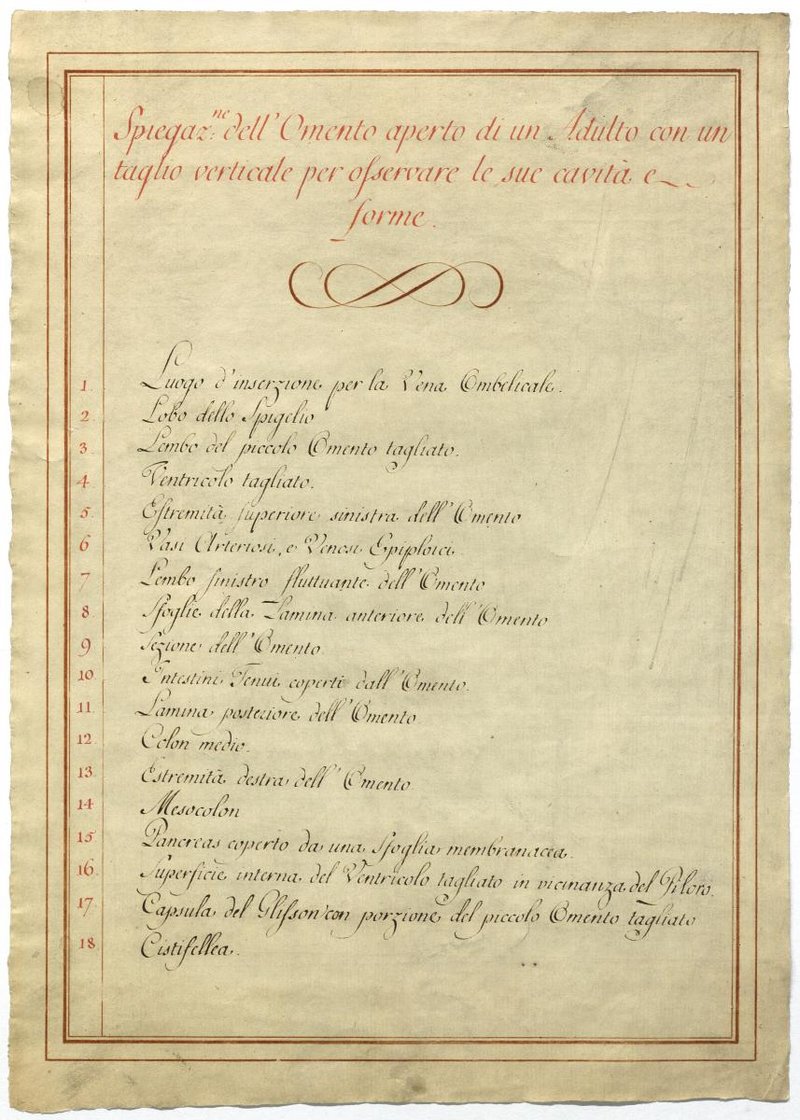 Spiegaz:ne dell'Omento aperto di un Adulto con un
taglio verticale per oſservare le sue cavità e
forme.
1. Luogo d'inserzione per la Vena Ombelicale.
2 Lobo dello Spigelio
3 Lembo del piccolo Omento tagliato.
4 Ventricolo tagliato.
5. Eſtremità ſuperiore sinistra dell'Omento
6 Vasi Arteriosi, e Venosi Epiploici.
7 Lembo ſinistro fluttuante dell'Omento
8 Sfoglie della Lamina anteriore dell'Omento
9 Sezione dell'Omento.
10 Intestini Tenui coperti dall'Omento.
11 Lamina posteriore dell'Omento
12 Colon medio.
13 Estremità destra dell'Omento
14 Mesocolon
15 Pancreas coperto da una Sfoglia membranacea.
16 Superficie interna del Ventricolo tagliato in vicinanza del Piloro.
17 Capsula del Gliſson con porzione del piccolo Omento tagliato
18 Cistifellea.